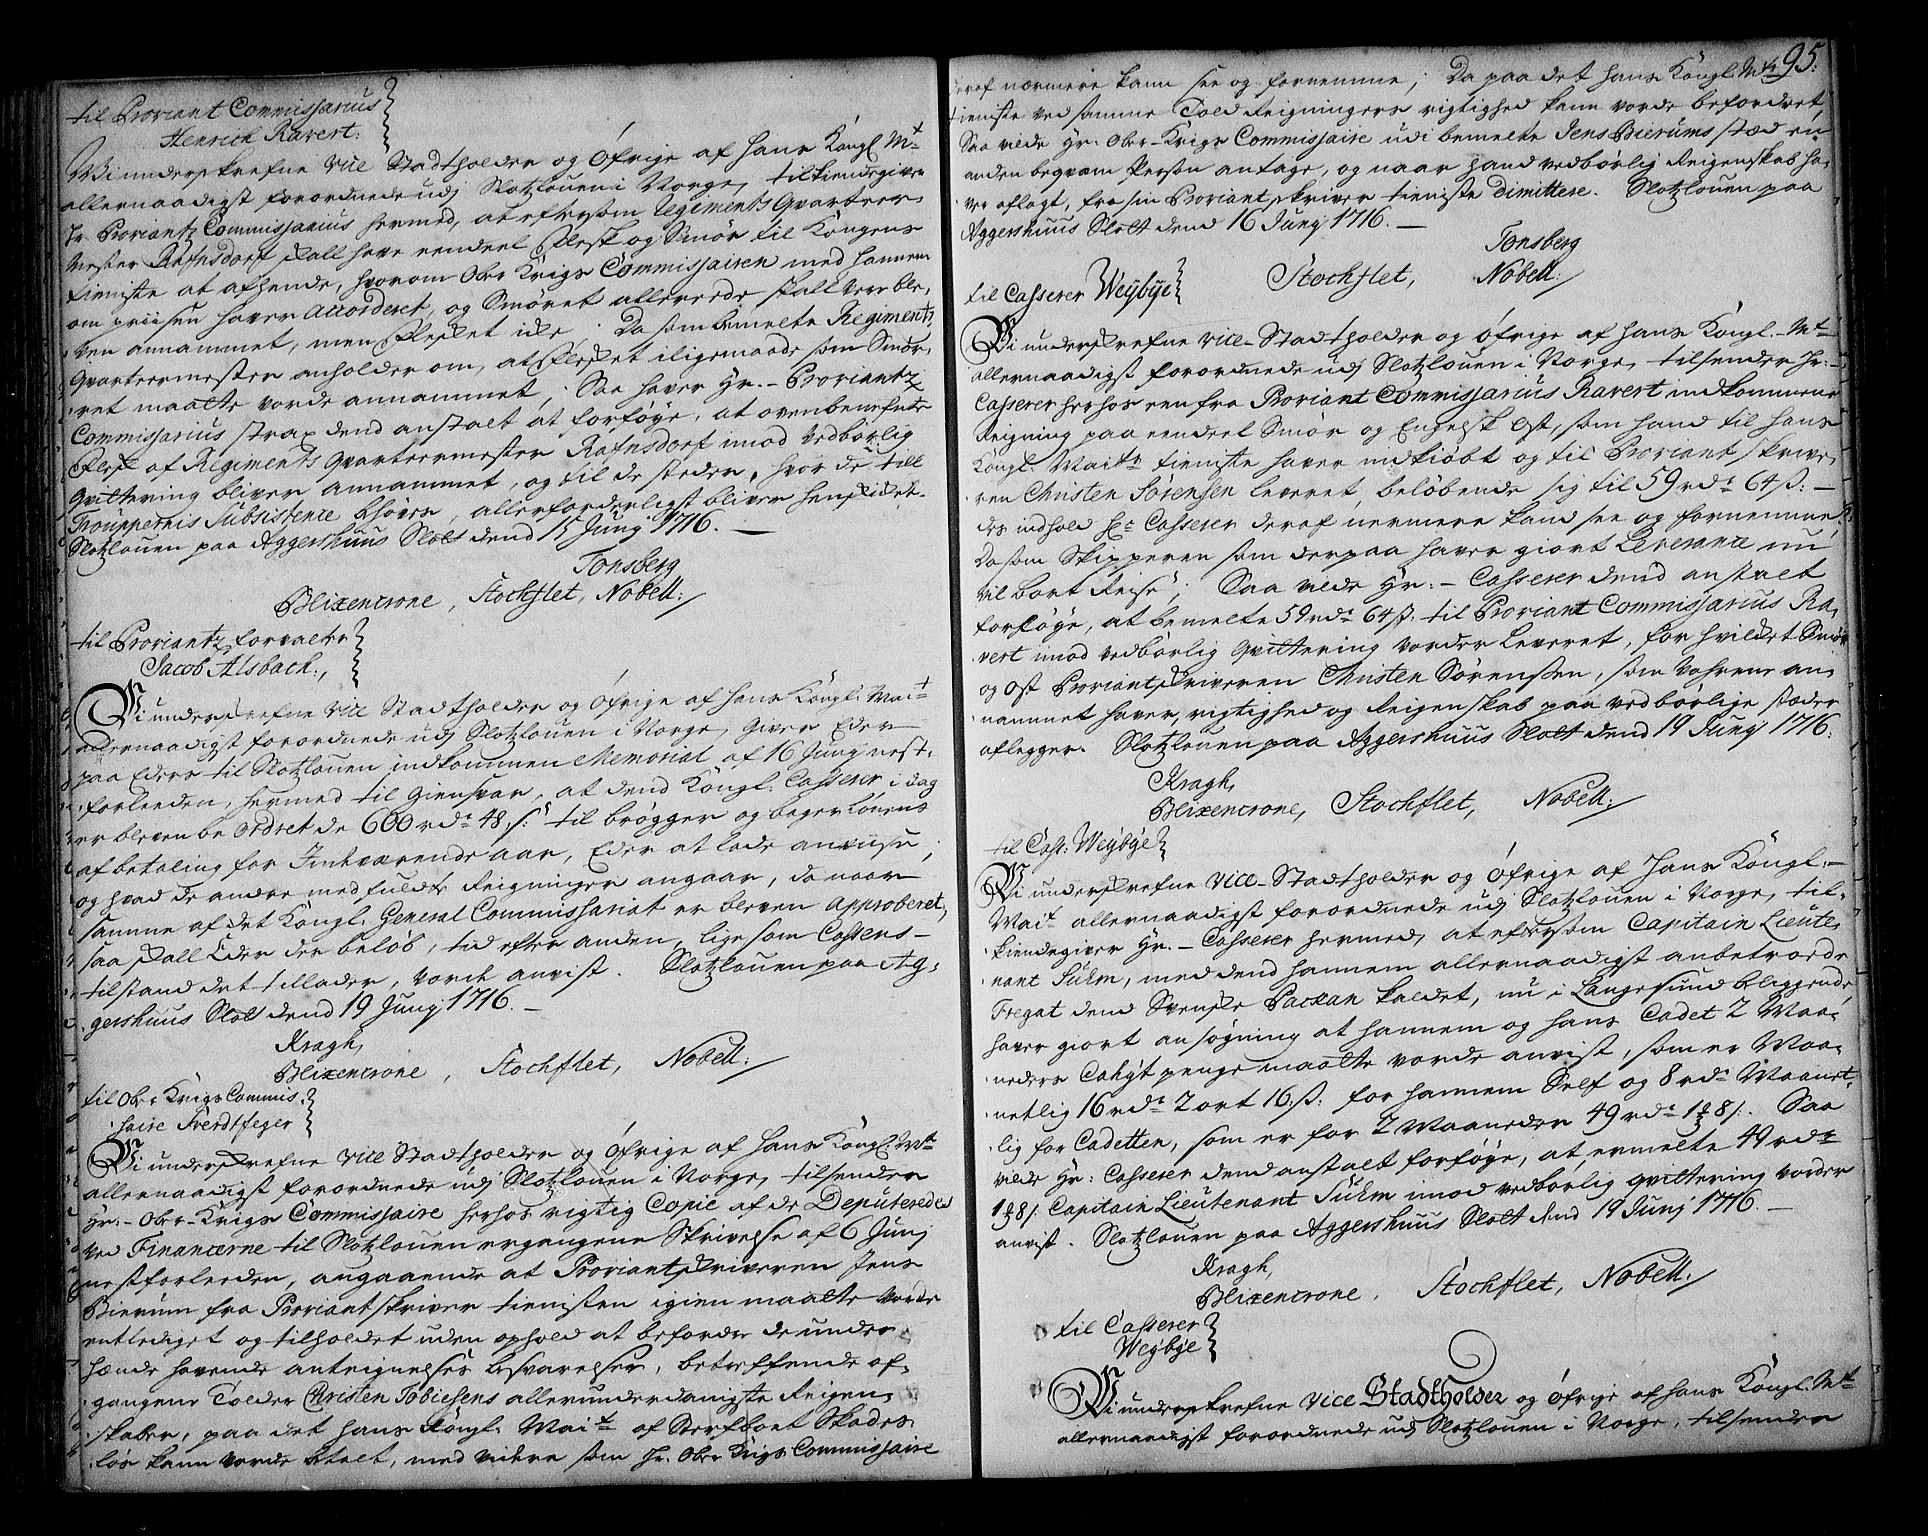 til Proviant Commissarius
Henrich Ravert:
Wi underskrefne Vice Stadtholder og Øfrige af Hans Kongl M:t
allernaadigst forordnede udj Slotzlouen i Norge, tilkiendegiver
Hr. Proviantz Commissarius hermed, at eftersom Regiments Qvarteer-
Mester Rafnsdorf skall have eendeel Flesk og Smør til Kongens
tieniste at afhende, hvorom Ober Krigs Commissairen med hannem
om prisen haver accorderet, og Smøret allereede skall vere ble-
ven annammet, men Flesket icke; Da som bemelte Regiments
Qvarteermester anholder om, at Flesket iligemaade som Smør-
ret maatte vorde annammet; Saa haver Hr:- Proviantz
Commissarius strax dend anstalt at forføye, at ovenbenefnte
Flesk af Regiments Qvarteermester Rafnsdorf imod vedbørlig
Qvittering bliver annammet, og til de steder, hvor de till
Trouppernis Subsistence behøves, allerforderligst bliver henskicket.
Slotzlouen paa Aggershuus Slott dend 15 Junj 1716. —
Tonsberg
Blixencrone, Stochflet, Nobell:/
til Proviantz forvalter
Jacob Alsbach:,
Wi underskrefne Vice Stadtholder og Øfrige af Hans Kongl: Mai:t
allernaadigst forordnede udj Slotzlouen i Norge, giver Eder
paa Eders til Slotzlouen indkommen Memorial af 16 Junj nest-
forleeden, hermed til giensvar, at dend Kongl: Casserer i dag
er bleven beordret de 600 rdr 48 s: til brøgger og bager lønens
afbetaling for Indeværende aar, Eder at lade anviise;
og hvad de andre medfuldte Reigninger angaar, da naar
samme af det Kongl: General Commissariat er bleven approberet,
saa skall Eder der beløb, tid efter anden, lige som Cassens-
tilstand det tillader, vorde anvist. Slotzlouen paa Ag-
gershuus Slott dend 19 Junj 1716. —
Kragh,
Blixencrone, Stochflet, Nobell:/
til Ober Krigs Commis-
saire Sverdtfeger
Wi underskrefne Vice Stadtholder og Øfrige af Hans Kongl: M:t
allernaadigst forordnede udj Slotzlouen i Norge, tilsender
Hr:- Ober-Krigs Commissaire herhos rigtig Copie af de Deputeredes
ved Financerne til Slotzlouen ergangene Skrivelse af 6 Junj
nestforleeden, angaaende at Proviantskriveren Jens
Bierum fra Proviantskriver tienisten igien maatte vorde
entlediget og tilholdet uden ophold at befordre de under
hænde havende antegnelses besvarelser, betreffende af-
gangene Tolder Christen Tobiesens allerunderdanigste Reigen-
skaber, paa det Hans Kongl: Mai:t af Sterfboet Skades-
løs kann vorde betalt, med videre som Hr. Ober Krigs Commissaire
95.
deraf nærmere kann see og fornemme; Da paa det Hans Kongl M:ts
tieniste ved samme Told Reigningers rigtighed kann vorde befordret,
Saa vilde Hr: Ober-Krigs Commissaire udi bemelte Jens Bierums sted en
anden beqvem Person antage, og naar hand vedbørlig Reigenskab ha-
ver aflagt, fra sin Proviantskriver tieniste dimittere. Slotzlouen paa
Aggershuus Slott dend 16 Junj 1716. —
Tonsberg
Stochflet, Nobell:/
til Casserer Weybye
Wi underskrefne Vice-Stadtholder og Øfrige af Hans Kongl:- M:t
allernaadigst forordnede udj Slotzlouen i Norge, tilsender Hr:-
Casserer herhos een fra Proviant Commissarius Ravert indkommene
Reigning paa eendeel Smør og Engelsk Ost, som hand til Hans
Kongl: Mai:ts tieniste haver indkiøbt og til Proviantskrive-
ren Christen Sørensen leveret, beløbende sig til 59 rdr 64 s: —
dis indhold Hr: Casserer deraf nermere kand see og fornemme.
Da som Skipperen som derpaa haver giort Leverance nu
vil bort Reise; Saa vilde Hr:- Casserer dend anstalt
forføye, at bemelte 59 rdr 64 s: til Proviant Commissarius Ra-
vert imod vedbørlig Qvittering vorder leveret, for hvilcket Smør
og Ost Proviantskriveren Christen Sørensen, som Vahrene an-
nammet haver, rigtighed og Reigenskab paa vedbørlige stæder
aflegger. Slotzlouen paa Aggershuus Slott dend 19 Junj 1716.
Kragh,
Blixencrone, Stochflet, Nobell:/
til Cass: Weybye
Wi underskrefne Vice-Stadtholder og Øfrige af Hans Kongl:-
Mai:t allernaadigst forordnede udj Slotzlouen i Norge, til-
kiendegiver Hr:- Casserer hermed, at eftersom Capitain Lieute-
nant Suhm, med dend hannem allernaadigst anbetroede
Fregat dend Svenske Packan kaldet, nu i Langesund beliggende,
haver giort ansøgning at hannem og hans Cadet 2 Maa-
neders Cahyt penge maatte vorde anvist, som er Maa-
netlig 16 rdr 2 ort 16 s: for hannem Self og 8 rdr Maanet-
lig for Cadetten, som er for 2 Maaneder 49 rdr 1 ort 8 s. Saa
vilde Hr: Casserer dend anstalt forføye, at ermelte 49 rdr
1 ort 8 s. Capitain Lieutenant Suhm imod vedbørlig Qvittering vorder
anvist. Slotzlouen paa Aggershuus Slott dend 19 Junj 1716. —
Kragh,
Blixencrone, Stochflet, Nobell:/
til Casserer
Weybye
Wi underskrefne Vice Stadtholder og Øfrige af Hans Kongl: M:t
allernaadigst forordnede udj Slotzlouen i Norge, tilsender